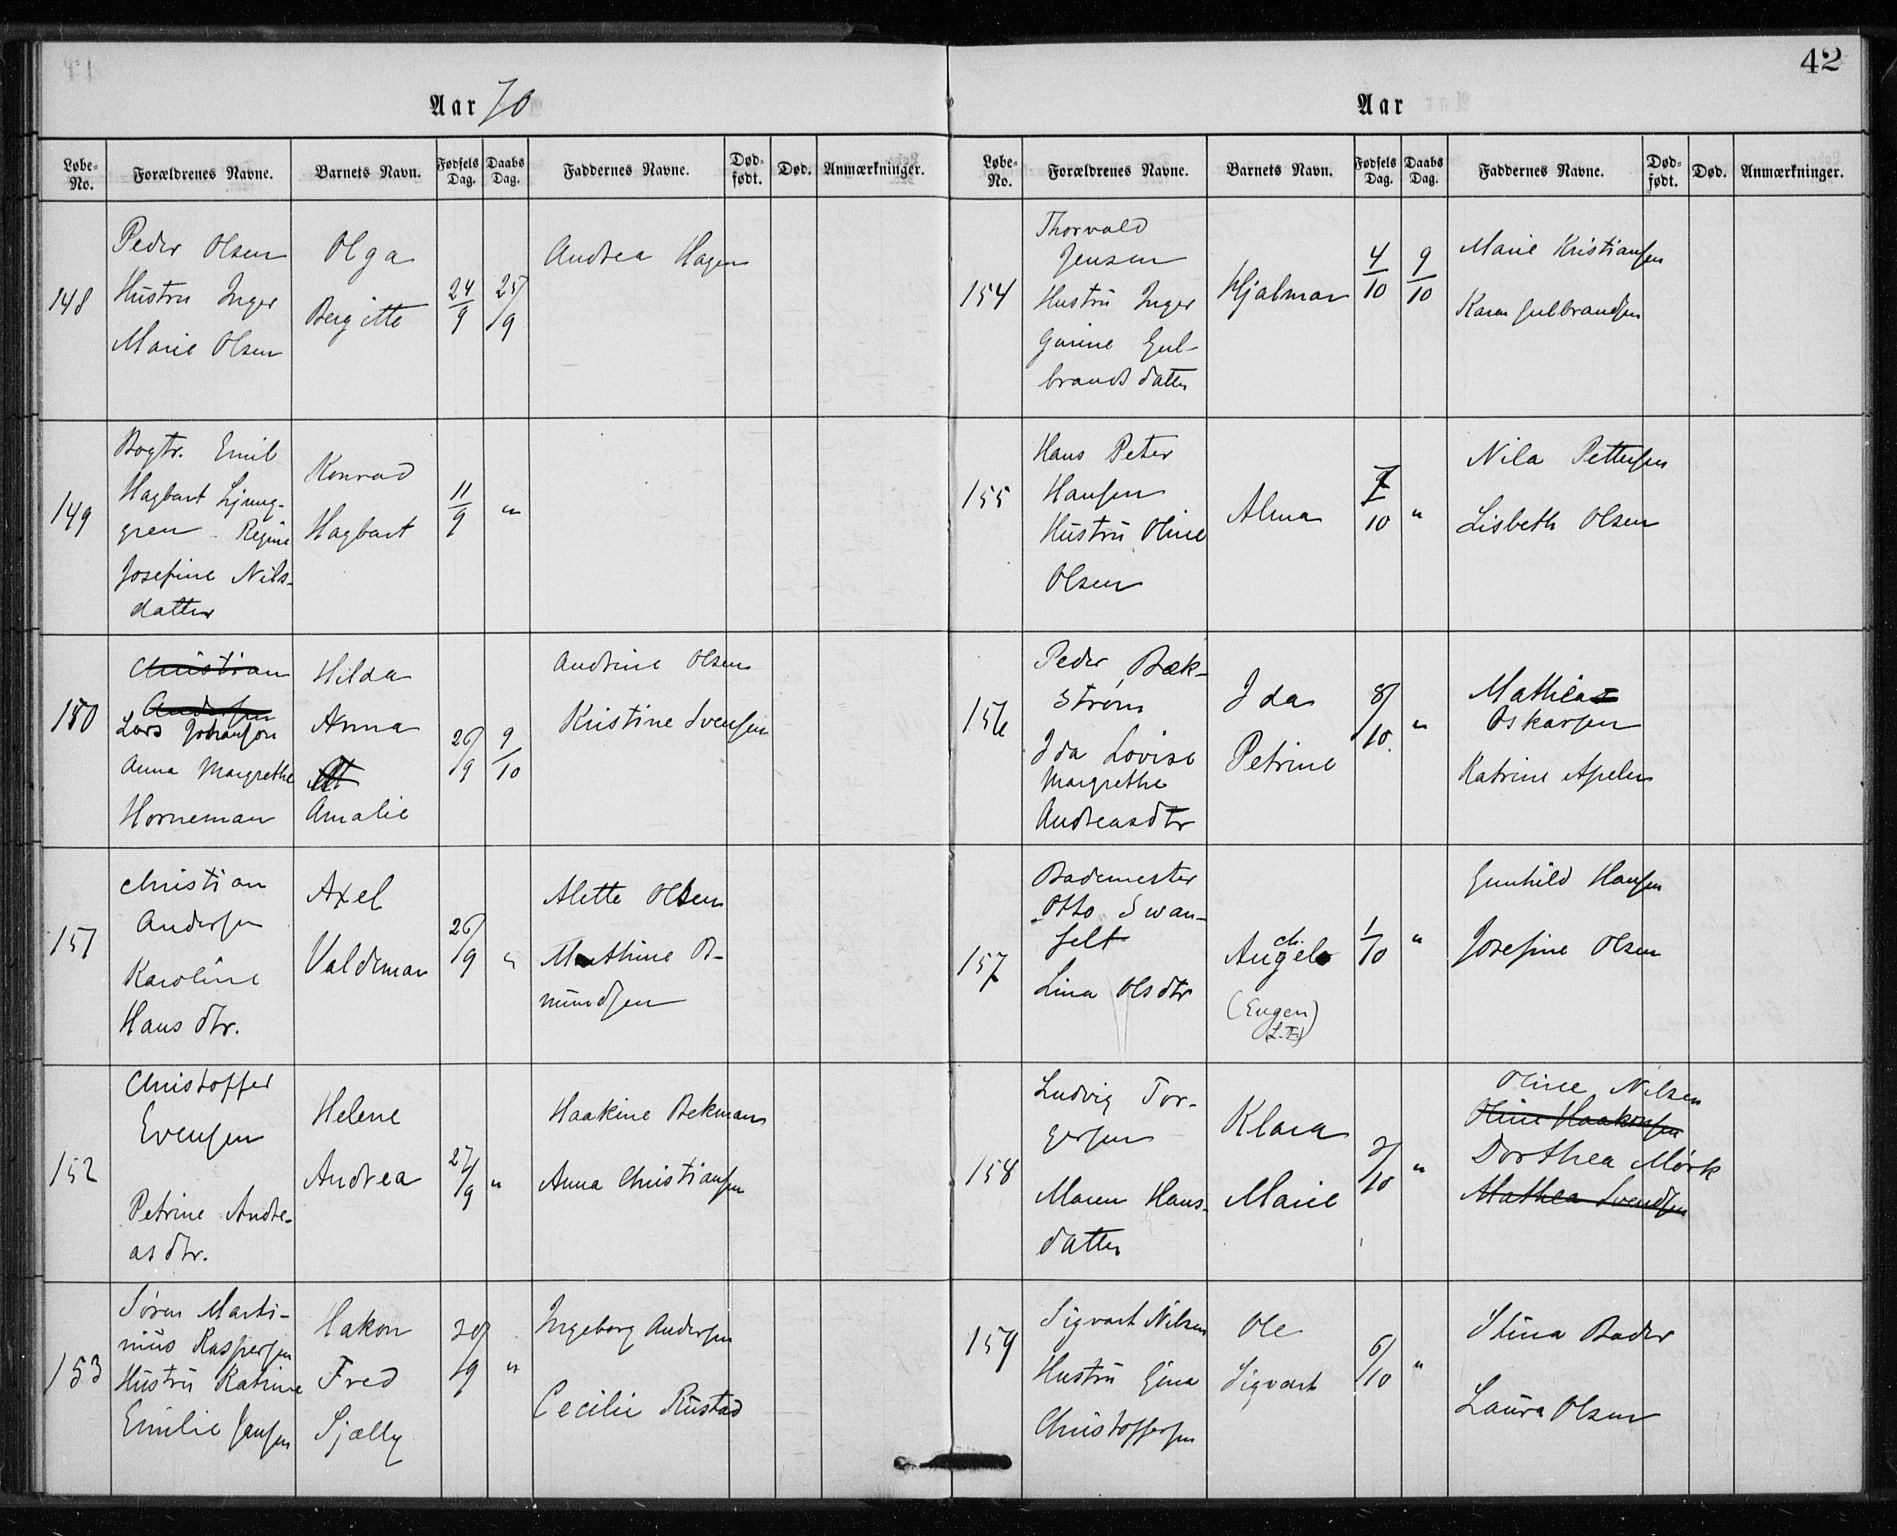 42
Aar 70
Løbe-No. Forældrenes Navne. Barnets Navn. Fødsels Dag. Daabs Dag. Faddernes Navne. Død-født. Død. Anmærkninger.
148
Peder Olsen
Hustru Inger
Marie Olsen
Olga
Bergitte
24/9
25/9
Andrea Hagen
149
Bogtr. Emil
Hagbart Ljung-
gren Regine
Josefine Nils-
datter
Konrad
Hagbart
11/9
"
150
Christian
Andersen
Lars Johanson
Anna Margrethe
Horneman
Hilda
Anna
Amalie
26/9
9/10
Andrine Olsen
Kristine Svensen
151
Christian
Andersen
Karoline
Hans dtr.
Axel
Valdemar
26/9
"
Alette Olsen
Mathine A-
mundsen
152
Christoffer
Evensen
Petrine Andre-
as dtr.
Helene
Andrea
27/9
"
Haakine Bekman
Anna Christiansen
153
Søren Marti-
nius Kaspersen
Hustru Katrine
Emilie Jensen
Hakon
Fred
Sjælly
20/9
"
Ingeborg Andersen
Cecilie Rustad
Aar
Løbe-No. Forældrenes Navne. Barnets Navn. Fødsels Dag. Daabs Dag. Faddernes Navne. Død-født. Død. Anmærkninger.
154
Thorvald
Jensen
Hustru Inger
Gurine Gul-
brands datter
Hjalmar
4/10
9/10
Marie Kristiansen
Karen Gulbrandsen
155
Hans Peter
Hansen
Hustru Oline
Olsen
Alma
7/10
"
Nila Pettersen
Lisbeth Olsen
156
Peder Bæk-
strøm
Ida Lovise
Margrethe
Andreasdtr
Ida
Petrine
8/10.
"
Mathias
Oskarsen
Katrine Apelen
157
Bademester
Otto Swan-
felt
Lina Olsdtr
Angel
(Eugen)
1/10
"
Gunhild Hansen
Josefine Olsen
158
Ludvig Tor-
gersen
Maren Hans-
datter
Klara
Marie
2/10
"
Oline Nilsen
Oline Haakonsen
Dorthea Mörk
Mathea Svendsen
159
Sigvart Nilsen
Hustru Gina
Christoffersen
Ole
Sigvart
6/10
"
Stina Bader
Laura Olsen